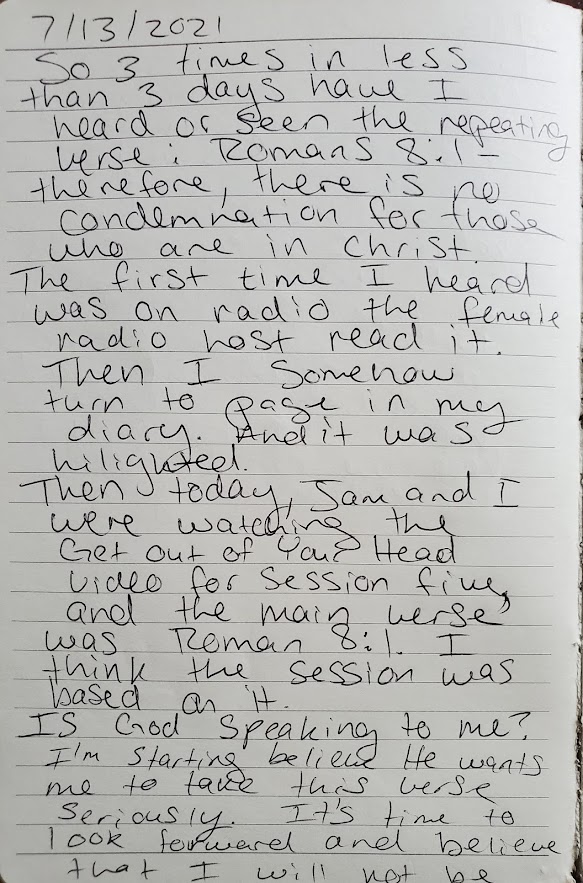 7/13/2021
So 3 times in less
than 3 days have I
heard or seen the repeating
verse: Romans 8:1-
therefore, there is no
condemnation for those
who are in Christ.
The first time I heard
was on radio the female
radio host read it.
Then I somehow
turn to page in my
diary. And it was
hilighted.
Then today, Sam and I
were watching the
Get out of Your Head
video for session five,
and the main verse
was Roman 8:1. I
think the session was
based on it.
Is God speaking to me?
I'm starting believe He wants
me to take this verse
seriously. It's time to
look forward and believe
that I will not be